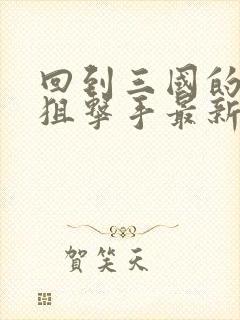 回到三國的
狙擊手最新
賀笑天